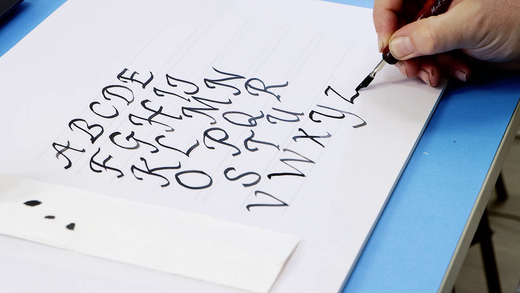 A B C D E
F G H I J
K L M N
O P Q R
S T U
V W X Y Z